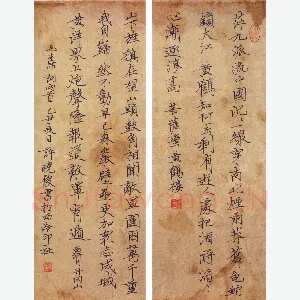 茫〻九派流中國沉〻一線穿南北煙雨莽蒼〻龜蛇
鎖大江 黃鶴知何去剩有遊人處把酒酹滔〻
心潮逐浪高 菩薩蠻黃鶴樓
山下旌旗在望山頭鼓角相聞敵軍圍困萬千重
我自巋然不動早已森嚴壁壘更加眾志成城
黃洋界上炮聲隆報道敵軍宵遁 西江月井岡山
毛主席詞兩首 乙丑 夏日 許曉俊書於 印社